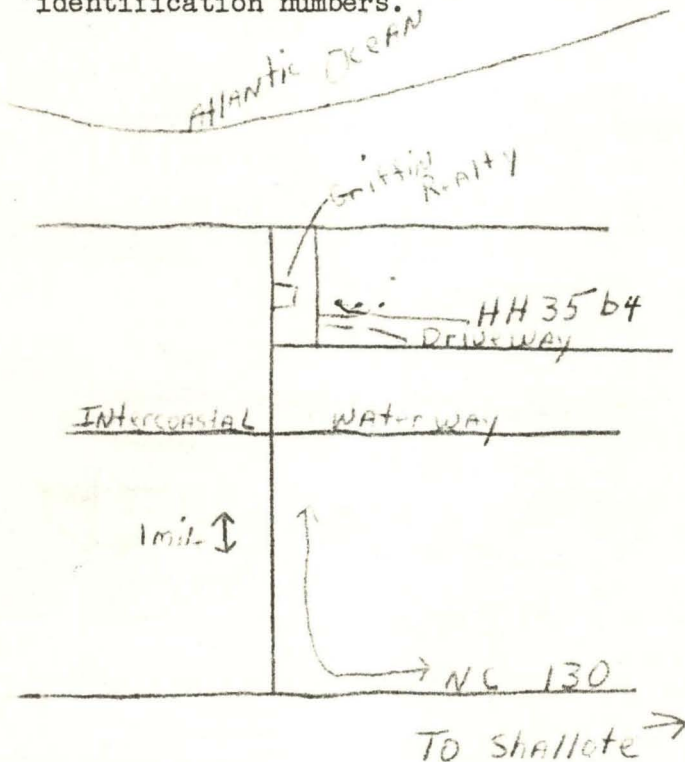 identification numbers.
Atlantic Ocean
Griffin
Realty
HH 35 b4
Driveway
Intercoastal Waterway
1 mile
NC 130
To Shallote